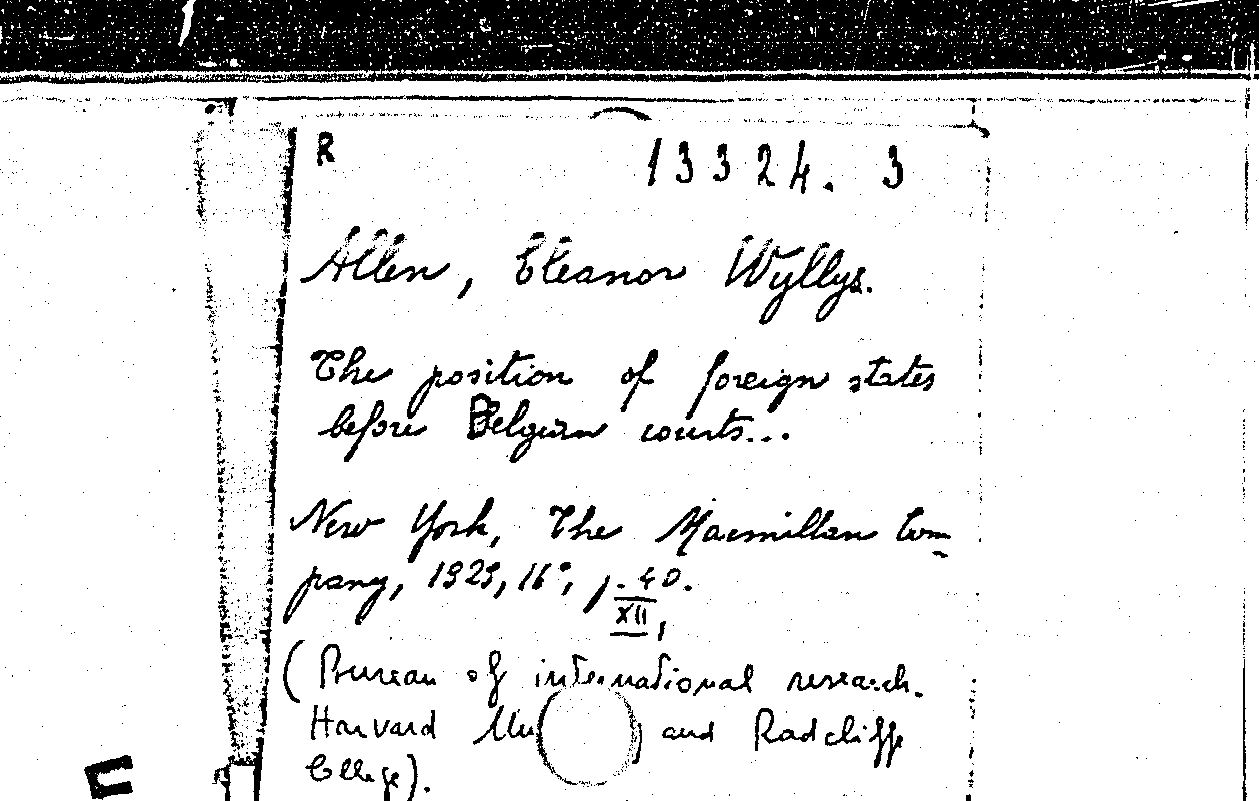 R 13324. 3
Allen, Eleanor Wyllys.
The position of foreign states
before Belgian courts...
New York, The Macmillan Com
pany, 1929, 16°, p. 40.
XII,
(Bureau of international research.
Harvard and Radcliffe
College).